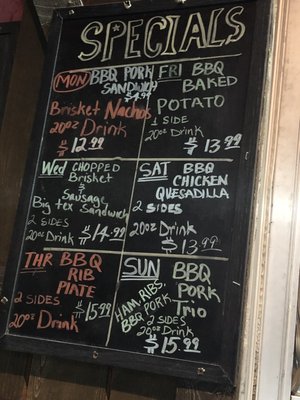 SPECIALS
MON BBQ PORK
SANDWICH
$4.99
Brisket Nachos
20oz Drink
$12.99
FRI BBQ
BAKED
POTATO
1 SIDE
20oz DRINK
$13.99
Wed CHOPPED
Brisket
&
Sausage
Big tex Sandwich
2 SIDES
20oz Drink $14.99
SAT BBQ
CHICKEN
QUESADILLA
2 SIDES
20oz Drink
$13.99
THR BBQ
RIB
PlATE
2 SIDES
20oz Drink $15.99
SUN BBQ
PORK
Trio
HAM, RIBS,
BBQ PORK
2 SIDES
20oz DRINK
$15.99